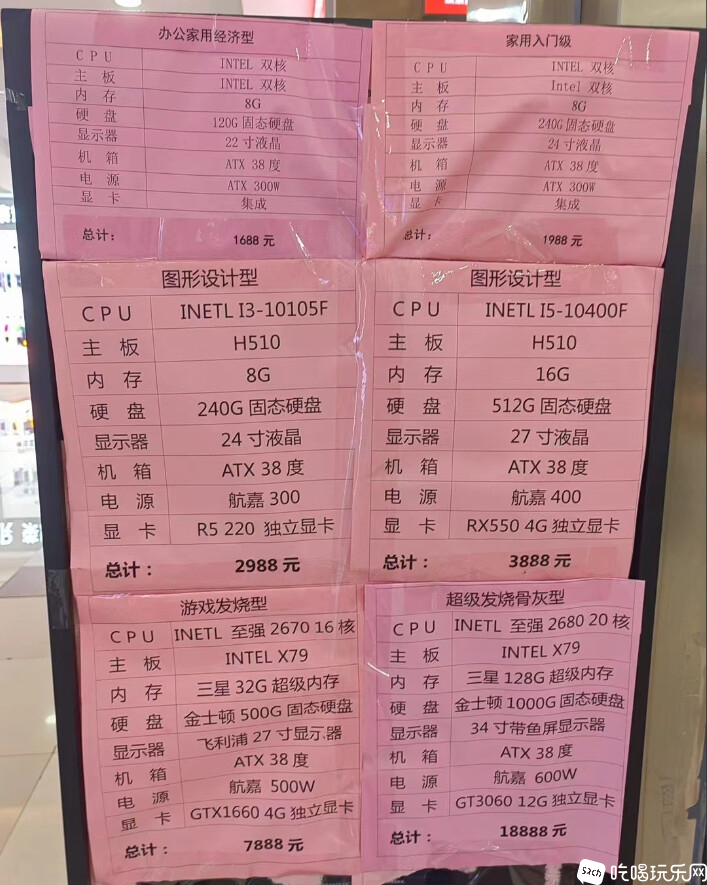 办公家用经济型
CPU INTEL 双核
主板 INTEL 双核
内存 8G
硬盘 120G 固态硬盘
显示器 22 寸液晶
机箱 ATX 38 度
电源 ATX 300W
显卡 集成
总计： 1688 元
家用入门级
CPU INTEL 双核
主板 Intel 双核
内存 8G
硬盘 240G 固态硬盘
显示器 24 寸液晶
机箱 ATX 38 度
电源 ATX 300W
显卡 集成
总计： 1988 元
图形设计型
CPU INETL I3-10105F
主板 H510
内存 8G
硬盘 240G 固态硬盘
显示器 24 寸液晶
机箱 ATX 38 度
电源 航嘉 300
显卡 R5 220 独立显卡
总计： 2988 元
图形设计型
CPU INETL I5-10400F
主板 H510
内存 16G
硬盘 512G 固态硬盘
显示器 27 寸液晶
机箱 ATX 38 度
电源 航嘉 400
显卡 RX550 4G 独立显卡
总计： 3888 元
游戏发烧型
CPU INETL 至强 2670 16 核
主板 INTEL X79
内存 三星 32G 超级内存
硬盘 金士顿 500G 固态硬盘
显示器 飞利浦 27 寸显示器
机箱 ATX 38 度
电源 航嘉 500W
显卡 GTX1660 4G 独立显卡
总计： 7888 元
超级发烧骨灰型
CPU INETL 至强 2680 20 核
主板 INTEL X79
内存 三星 128G 超级内存
硬盘 金士顿 1000G 固态硬盘
显示器 34 寸带鱼屏显示器
机箱 ATX 38 度
电源 航嘉 600W
显卡 GT3060 12G 独立显卡
总计： 18888 元
52ch 吃喝玩乐网